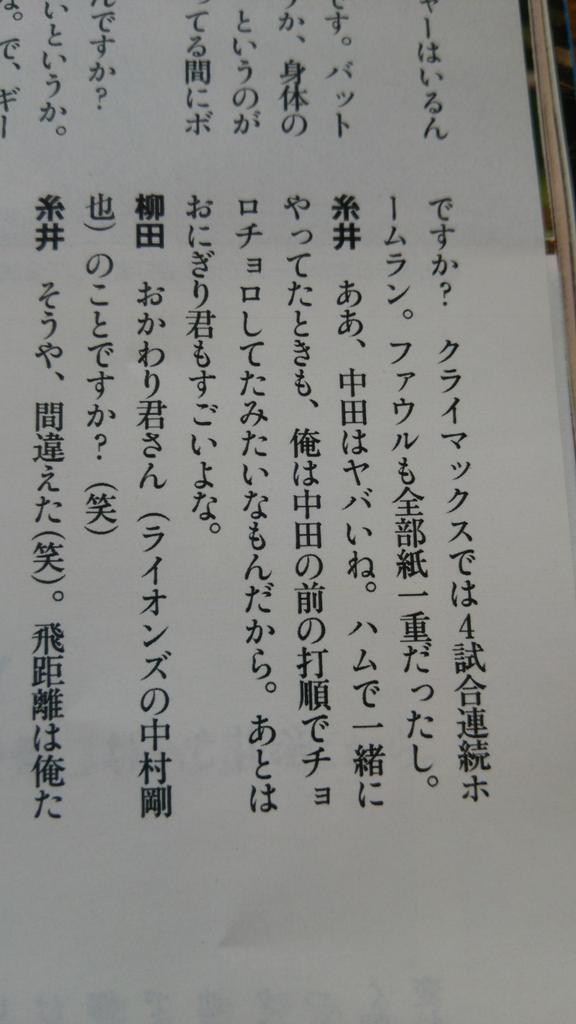 ャーはいるん
です。バット
うか、身体の
というのが
ってる間にボ
んですか？
いというか。
な。で、ギー
ですか？　クライマックスでは4試合連続ホ
ームラン。ファウルも全部紙一重だったし。
糸井　ああ、中田はヤバいね。ハムで一緒に
やってたときも、俺は中田の前の打順でチョ
ロチョロしてたみたいなもんだから。あとは
おにぎり君もすごいよな。
柳田　おかわり君さん（ライオンズの中村剛
也）のことですか？（笑）
糸井　そうや、間違えた（笑）。飛距離は俺た